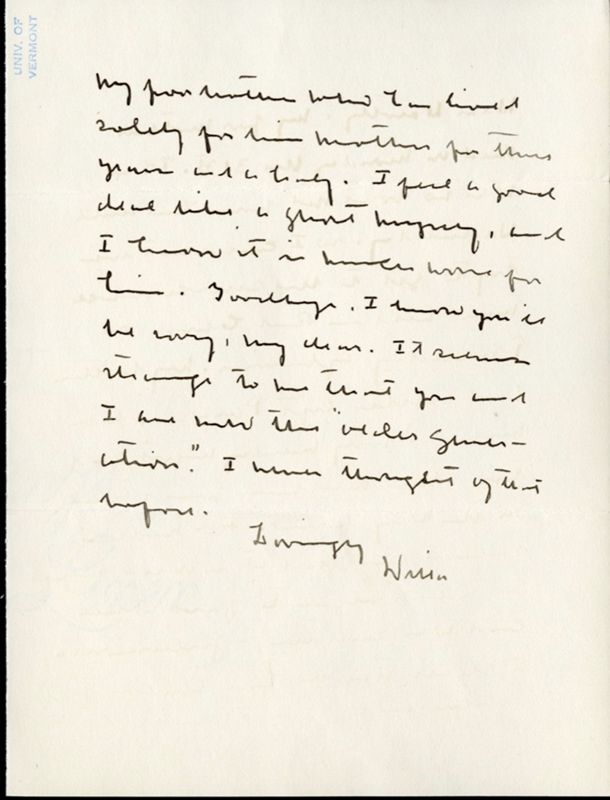 UNIV. OF
VERMONT
my poor brother who has lived
solely for his mother for three
years and a half. I feel a good
deal like a ghost myself, and
I know it is much worse for
him. Goodbye. I know you'll
be sorry, my dear. It seems
strange to me that you and
I are now the "older gener-
ation." I never thought of that
before.
Lovingly
Willa